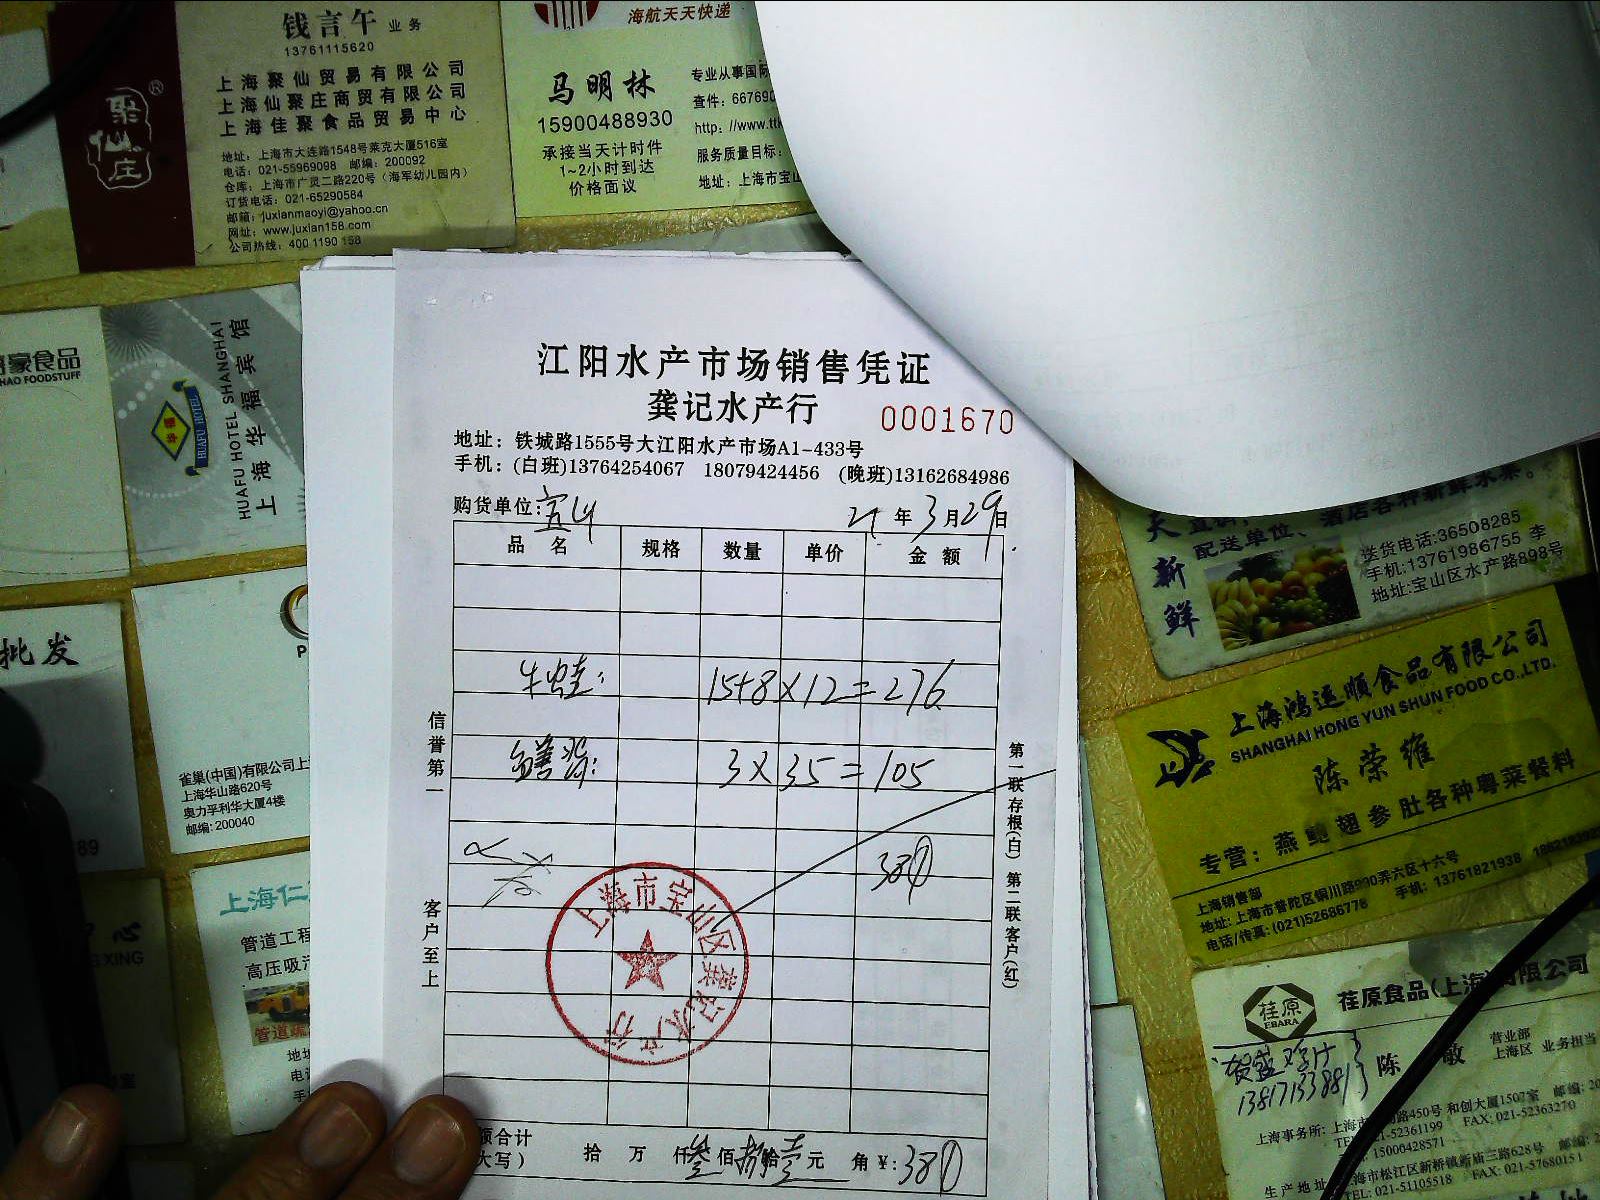 钱言午 业务
13761115620
上海聚仙贸易有限公司
上海仙聚庄商贸有限公司
上海佳聚食品贸易中心
地址：上海市大连路1548号莱克大厦516室
电话：021-55969098 邮编：200092
仓库：上海市广灵二路220号（海军幼儿园内）
订货电话：021-65290584
邮箱：juxianmaoyi@yahoo.cn
网址：www.juxian158.com
公司热线：400 1190 158
聚仙庄
海航天天快递
马明林
15900488930
承接当天计时件
1~2小时到达
价格面议
专业从事国际
查件：66769
http：//www.tt
服务质量目标：
地址：上海市宝山
豪食品
HAO FOODSTUFF
HUAFU HOTEL
HUAFU HOTEL SHANGHAI
上海华福宾馆
江阳水产市场销售凭证
龚记水产行
0001670
地址：铁城路1555号大江阳水产市场A1-433号
手机：(白班)13764254067 18079424456 (晚班)13162684986
购货单位：
年3月29日
品名 规格 数量 单价 金额
牛蛙： 15+8×12=276
3×35=105
381
信誉第一
客户至上
第一联存根(白) 第二联客户(红)
上海市宝山区龚记水产行
额合计
大写）
拾 万 仟叁佰捌拾壹元 角 ￥：381
批发
89
雀巢(中国)有限公司上
上海华山路620号
奥力孚利华大厦4楼
邮编：200040
心
XING
上海仁
管道工程
高压吸污
管道疏
地址
电
手
新鲜
配送单位、酒店各种新鲜水果。
送货电话:36508285
手机:13761986755 李
地址:宝山区水产路898号
上海鸿运顺食品有限公司
SHANGHAI HONG YUN SHUN FOOD CO.,LTD.
陈荣维
专营：燕鲍翅参肚各种粤菜餐料
上海销售部
地址：上海市普陀区铜川路990弄六区十六号
电话/传真：(021)52686778 手机：13761821938
荏原
EBARA
荏原食品(上海)有限公司
陈 敏
营业部
上海区 业务担当
13817133881
上海事务所：上海市 路450号 和创大厦1507室 邮编：20
TEL：021-52361199 FAX：021-52363270
15000428571
生产地址： 上海市松江区新桥镇新庙三路628号 邮编：
TEL：021-51105518 FAX：021-57680151